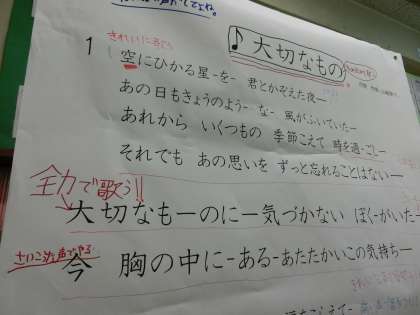 てしょね。
♪大切なもの
きれいに歌う
1 空にひかる星ーをー 君とかぞえた夜ー
あの日もきょうのようーなー 風がふいていたー
あれから いくつもの 季節こえて 時を過ーごしー
それでも あの思いを ずっと忘れることはないー
全力で歌う!!
大切なもーのにー気づかない ぼくーがいたー
さいこうの声でやる
今 胸の中にーあるーあたたかいこの気持ちー